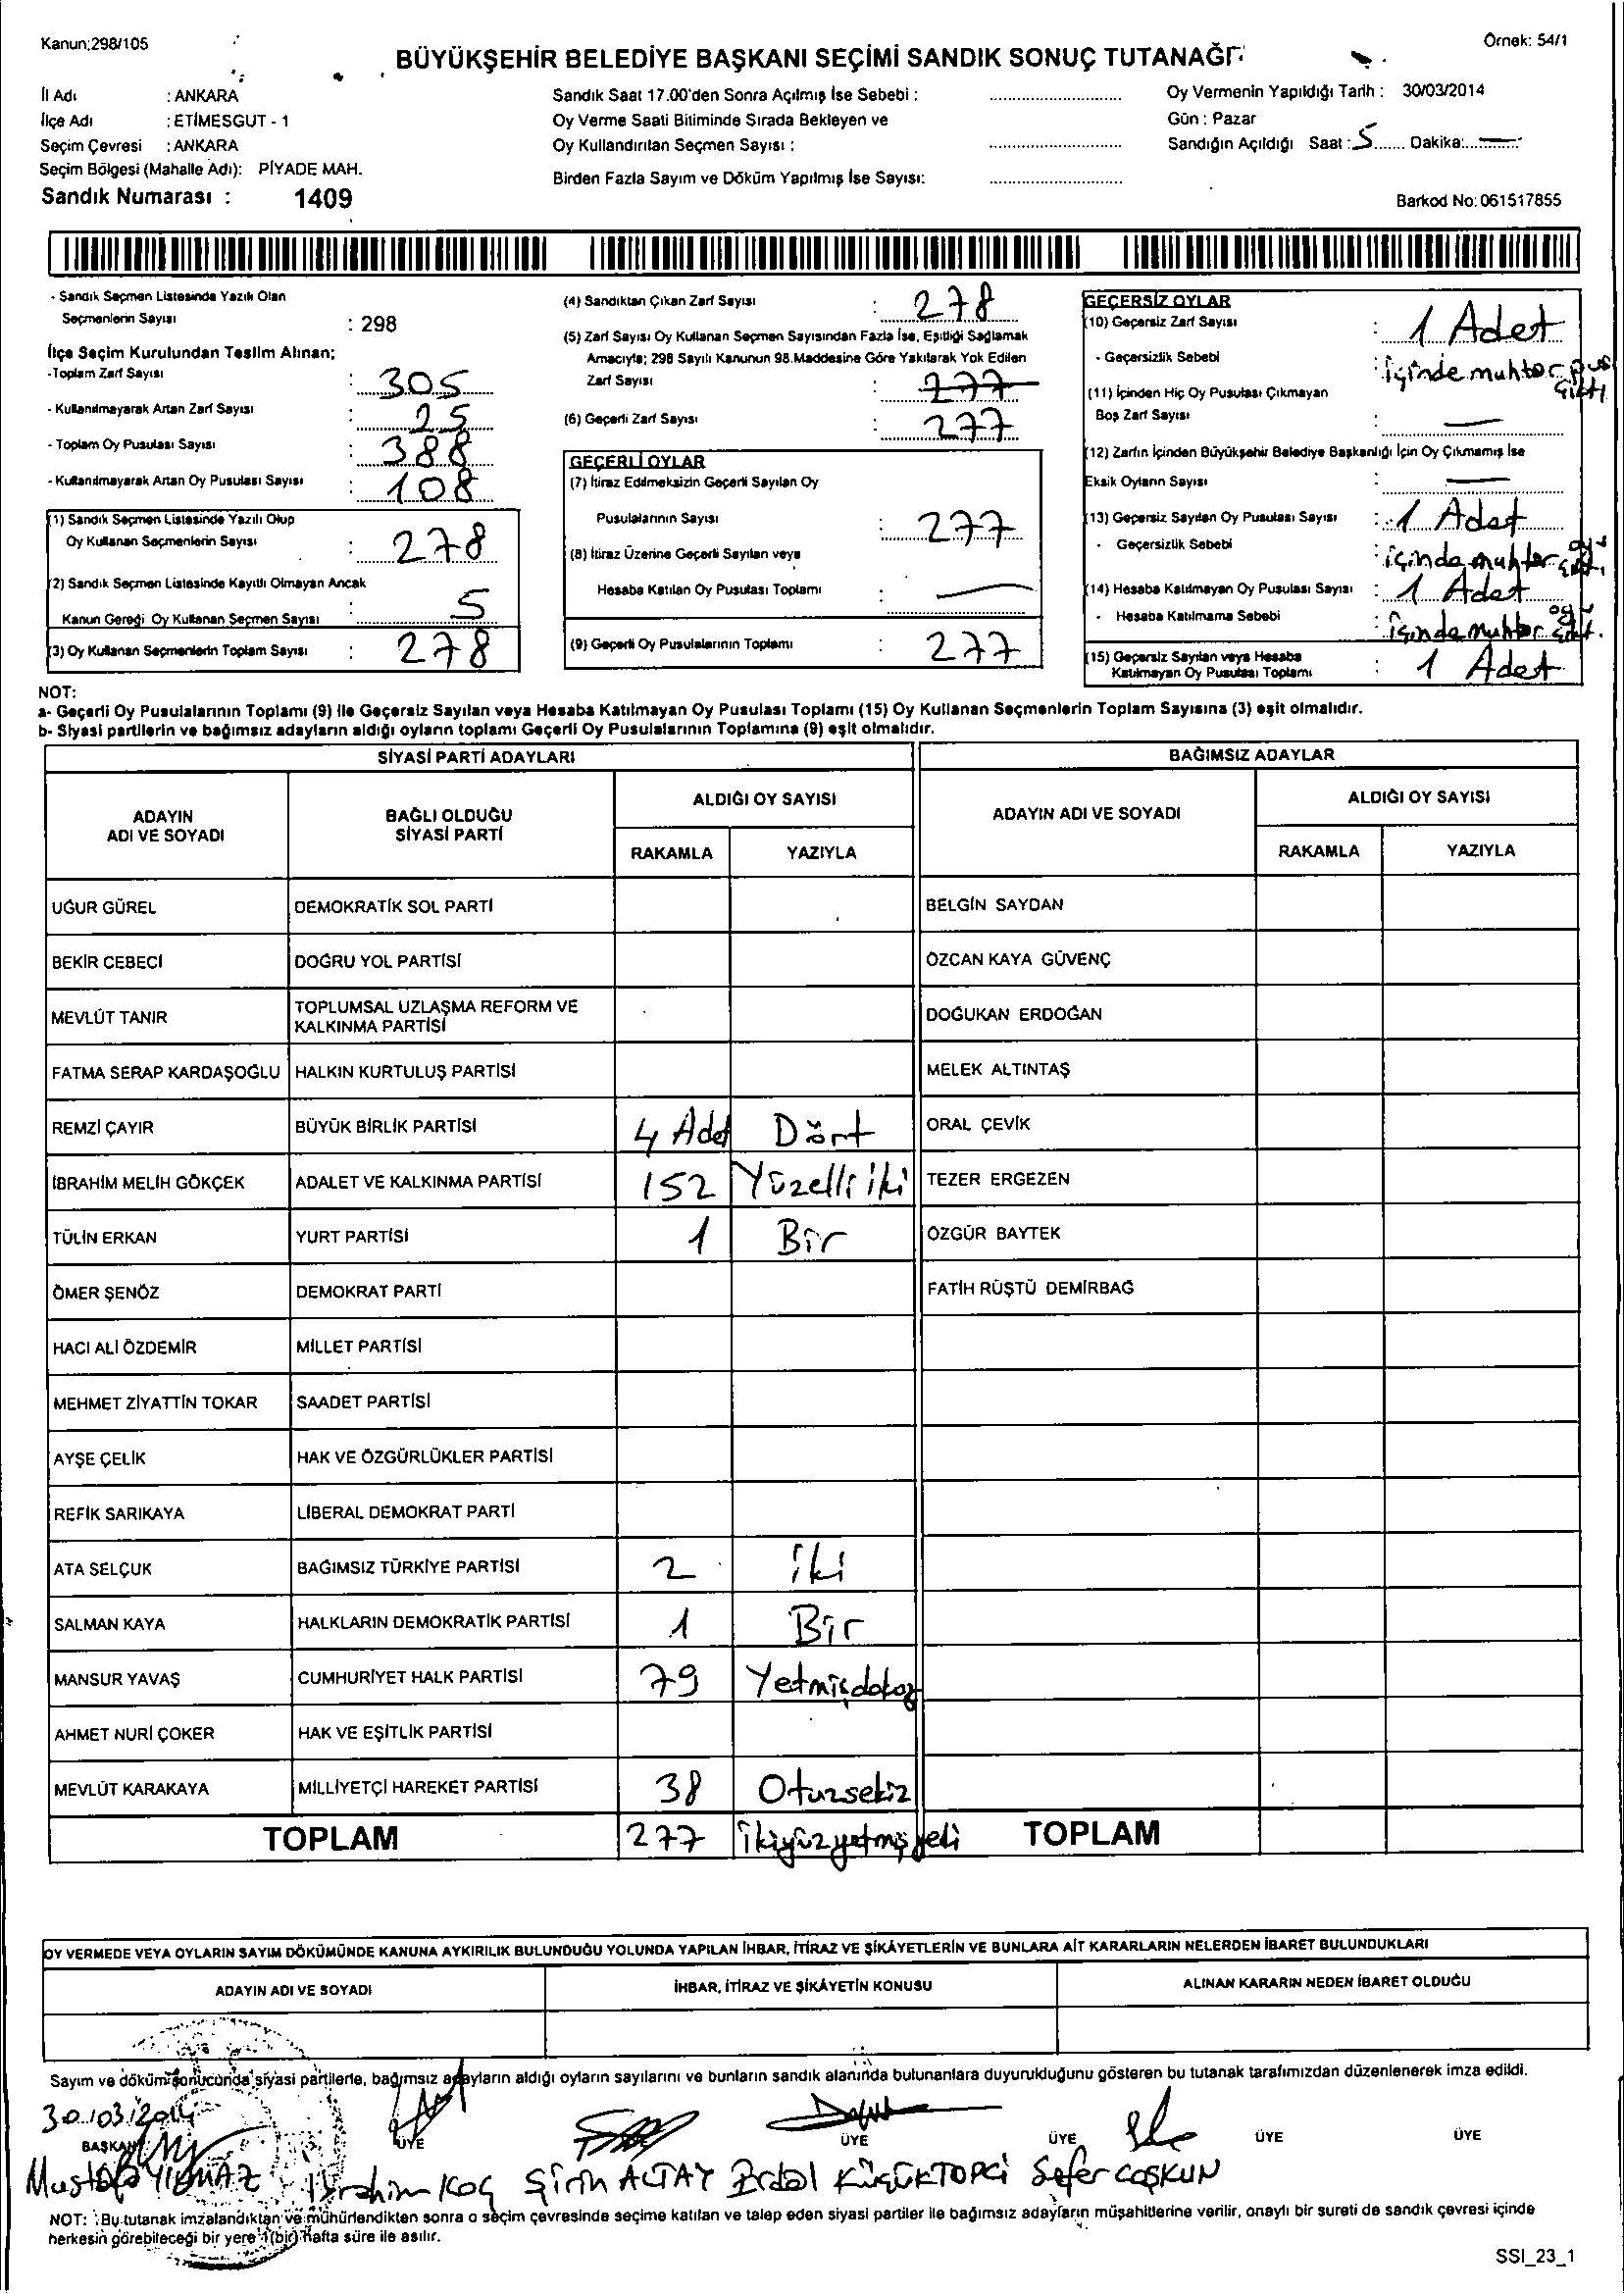 Kanun:298/105
Örnek: 54/1
BÜYÜKŞEHİR BELEDİYE BAŞKANI SEÇİMİ SANDIK SONUÇ TUTANAĞI
İl Adı : ANKARA
İlçe Adı : ETİMESGUT - 1
Seçim Çevresi : ANKARA
Seçim Bölgesi (Mahalle Adı): PİYADE MAH.
Sandık Numarası : 1409
Sandık Saat 17.00'den Sonra Açılmış İse Sebebi :
Oy Verme Saati Bitiminde Sırada Bekleyen ve
Oy Kullandırılan Seçmen Sayısı :
Birden Fazla Sayım ve Döküm Yapılmış İse Sayısı:
Oy Vermenin Yapıldığı Tarih : 30/03/2014
Gün : Pazar
Sandığın Açıldığı Saat : 5 Dakika: —
Barkod No: 061517855
- Sandık Seçmen Listesinde Yazılı Olan
Seçmenlerin Sayısı : 298
İlçe Seçim Kurulundan Teslim Alınan;
-Toplam Zarf Sayısı : 305
- Kullanılmayarak Artan Zarf Sayısı : 25
- Toplam Oy Pusulası Sayısı : 388
- Kullanılmayarak Artan Oy Pusulası Sayısı : 108
(1) Sandık Seçmen Listesinde Yazılı Olup
Oy Kullanan Seçmenlerin Sayısı : 278
(2) Sandık Seçmen Listesinde Kayıtlı Olmayan Ancak
Kanun Gereği Oy Kullanan Seçmen Sayısı : 5
(3) Oy Kullanan Seçmenlerin Toplam Sayısı : 278
(4) Sandıktan Çıkan Zarf Sayısı : 278
(5) Zarf Sayısı Oy Kullanan Seçmen Sayısından Fazla İse, Eşitliği Sağlamak
Amacıyla; 298 Sayılı Kanunun 98.Maddesine Göre Yakılarak Yok Edilen
Zarf Sayısı : 277
(6) Geçerli Zarf Sayısı : 277
GEÇERLİ OYLAR
(7) İtiraz Edilmeksizin Geçerli Sayılan Oy
Pusulalarının Sayısı : 277
(8) İtiraz Üzerine Geçerli Sayılan veya
Hesaba Katılan Oy Pusulası Toplamı : —
(9) Geçerli Oy Pusulalarının Toplamı : 277
GEÇERSİZ OYLAR
(10) Geçersiz Zarf Sayısı : 1 Adet
- Geçersizlik Sebebi : içinde muhtar pus çıktı
(11) İçinden Hiç Oy Pusulası Çıkmayan
Boş Zarf Sayısı : —
(12) Zarfın İçinden Büyükşehir Belediye Başkanlığı İçin Oy Çıkmamış İse
Eksik Oyların Sayısı : —
(13) Geçersiz Sayılan Oy Pusulası Sayısı : 1 Adet
- Geçersizlik Sebebi : içinde muhtar oyu
(14) Hesaba Katılmayan Oy Pusulası Sayısı : 1 Adet
- Hesaba Katılmama Sebebi : içinde muhtar oyu
(15) Geçersiz Sayılan veya Hesaba
Katılmayan Oy Pusulası Toplamı : 1 Adet
NOT:
a- Geçerli Oy Pusulalarının Toplamı (9) ile Geçersiz Sayılan veya Hesaba Katılmayan Oy Pusulası Toplamı (15) Oy Kullanan Seçmenlerin Toplam Sayısına (3) eşit olmalıdır.
b- Siyasi partilerin ve bağımsız adayların aldığı oyların toplamı Geçerli Oy Pusulalarının Toplamına (9) eşit olmalıdır.
SİYASİ PARTİ ADAYLARI
BAĞIMSIZ ADAYLAR
ADAYIN ADI VE SOYADI
BAĞLI OLDUĞU SİYASİ PARTİ
ALDIĞI OY SAYISI
RAKAMLA YAZIYLA
ADAYIN ADI VE SOYADI
ALDIĞI OY SAYISI
RAKAMLA YAZIYLA
UĞUR GÜREL DEMOKRATİK SOL PARTİ BELGİN SAYDAN
BEKİR CEBECİ DOĞRU YOL PARTİSİ ÖZCAN KAYA GÜVENÇ
MEVLÜT TANIR TOPLUMSAL UZLAŞMA REFORM VE KALKINMA PARTİSİ DOĞUKAN ERDOĞAN
FATMA SERAP KARDAŞOĞLU HALKIN KURTULUŞ PARTİSİ MELEK ALTINTAŞ
REMZİ ÇAYIR BÜYÜK BİRLİK PARTİSİ 4 Adet Dört ORAL ÇEVİK
İBRAHİM MELİH GÖKÇEK ADALET VE KALKINMA PARTİSİ 152 Yüzelli iki TEZER ERGEZEN
TÜLİN ERKAN YURT PARTİSİ 1 Bir ÖZGÜR BAYTEK
ÖMER ŞENÖZ DEMOKRAT PARTİ FATİH RÜŞTÜ DEMİRBAĞ
HACI ALİ ÖZDEMİR MİLLET PARTİSİ
MEHMET ZİYATTİN TOKAR SAADET PARTİSİ
AYŞE ÇELİK HAK VE ÖZGÜRLÜKLER PARTİSİ
REFİK SARIKAYA LİBERAL DEMOKRAT PARTİ
ATA SELÇUK BAĞIMSIZ TÜRKİYE PARTİSİ 2 iki
SALMAN KAYA HALKLARIN DEMOKRATİK PARTİSİ 1 Bir
MANSUR YAVAŞ CUMHURİYET HALK PARTİSİ 79 Yetmişdokuz
AHMET NURİ ÇOKER HAK VE EŞİTLİK PARTİSİ
MEVLÜT KARAKAYA MİLLİYETÇİ HAREKET PARTİSİ 38 Otuzsekiz
TOPLAM 277 ikiyüzyetmişyedi TOPLAM
OY VERMEDE VEYA OYLARIN SAYIM DÖKÜMÜNDE KANUNA AYKIRILIK BULUNDUĞU YOLUNDA YAPILAN İHBAR, İTİRAZ VE ŞİKÂYETLERİN VE BUNLARA AİT KARARLARIN NELERDEN İBARET BULUNDUKLARI
ADAYIN ADI VE SOYADI İHBAR, İTİRAZ VE ŞİKÂYETİN KONUSU ALINAN KARARIN NEDEN İBARET OLDUĞU
Sayım ve döküm sonucunda siyasi partilerle, bağımsız adayların aldığı oyların sayılarını ve bunların sandık alanında bulunanlara duyurulduğunu gösteren bu tutanak tarafımızdan düzenlenerek imza edildi.
30/03/2014
BAŞKAN ÜYE ÜYE ÜYE ÜYE ÜYE
Mustafa YILMAZ İbrahim Koç Şirin ALTAY Erdal KÜÇÜKTOPÇİ Sefer COŞKUN
NOT: Bu tutanak imzalandıktan ve mühürlendikten sonra o seçim çevresinde seçime katılan ve talep eden siyasi partiler ile bağımsız adayların müşahitlerine verilir, onaylı bir sureti de sandık çevresi içinde
herkesin görebileceği bir yere 1(bir) hafta süre ile asılır.
SSI_23_1